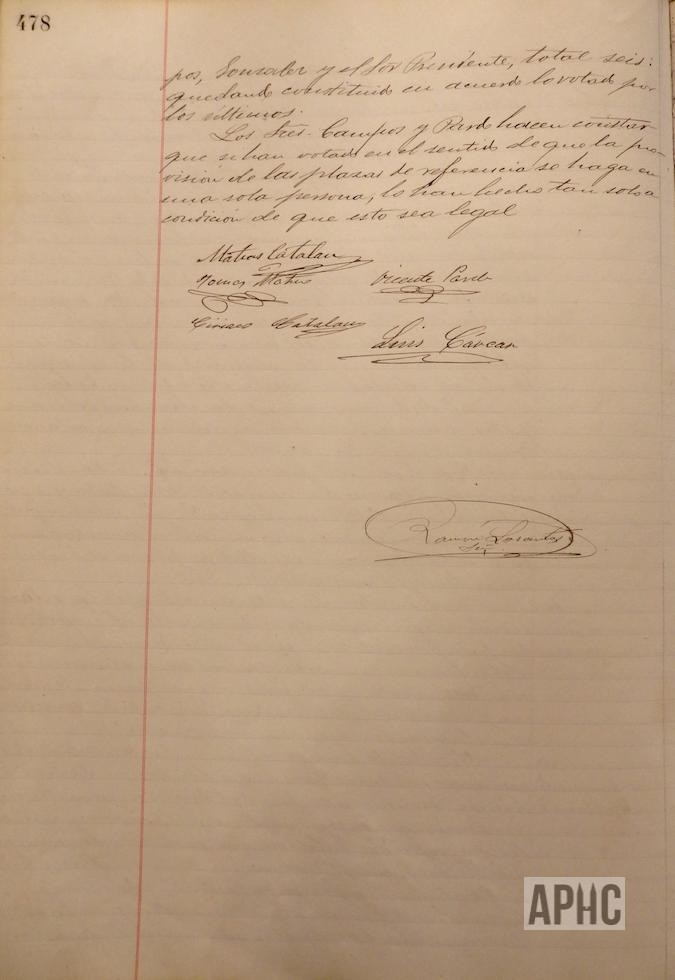 478
pos, Gonzalez y el Sor Presidente, total seis:
quedando constituido en acuerdo lo votado por
los últimos.
Los Sres. Campos y Pardo hacen constar
que si han votado en el sentido de que la pro-
visión de las plazas de referencia se haga en
una sola persona, lo han hecho tan solo a
condición de que esto sea legal
Matias Catalan
Tomas Mateo Vicente Pardo
Ciriaco Catalan
Luis
Ramon
APHC